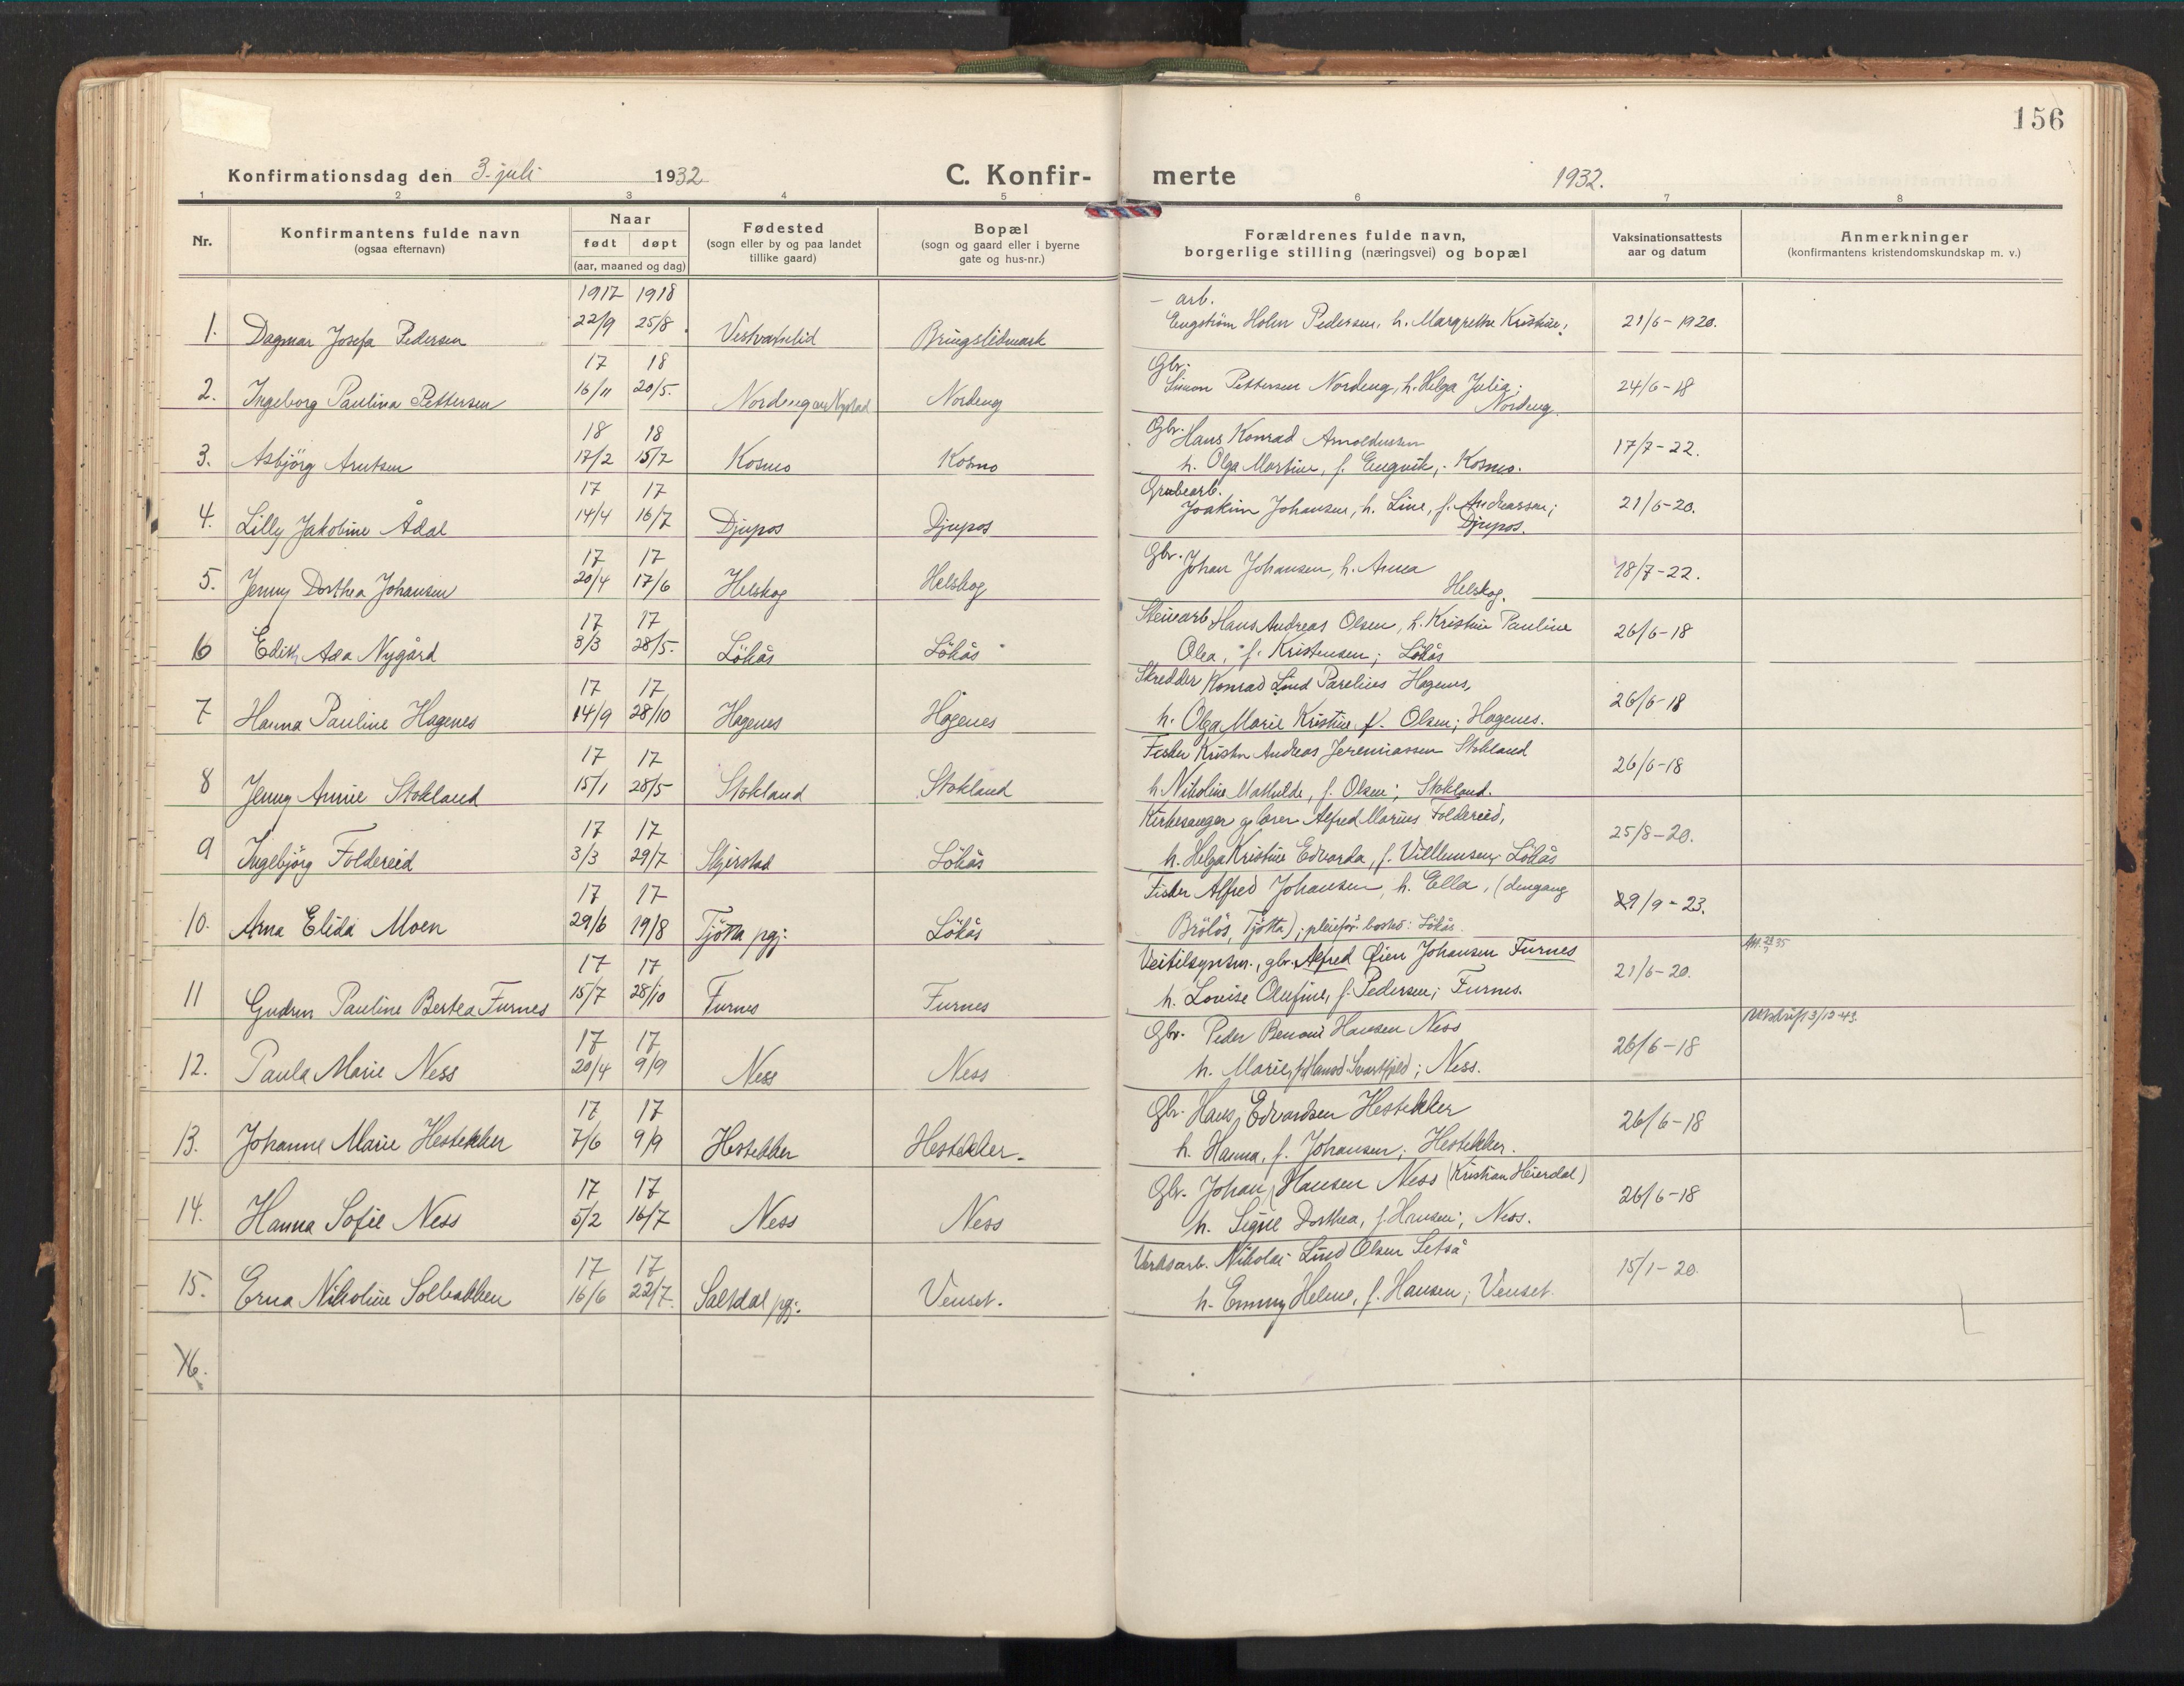 156
Konfirmationsdag den 3. juli 1932 C. Konfir- merte 1932.
1 2 3 4 5 6 7 8
Nr. Konfirmantens fulde navn (ogsaa efternavn) Naar født døpt (aar, maaned og dag) Fødested (sogn eller by og paa landet tillike gaard) Bopæl (sogn og gaard eller i byerne gate og hus-nr.) Forældrenes fulde navn, borgerlige stilling (næringsvei) og bopæl Vaksinationsattests aar og datum Anmerkninger (konfirmantens kristendomskundskap m. v.)
1917 1918 - arb.
1. Dagmar Josefa Pedersen 22/9 25/8 Vestvatnlid Bringslidmark Engstrøm Holm Pedersen, h. Margrethe Kristine; 21/6-1920.
17 18 Gbr.
2. Ingeborg Paulina Pettersen 16/11 20/5. Nordeng Nystad Nordeng Simon Pettersen Nordeng, h. Helga Julia; 24/6-18
Nordeng.
18 18 Gbr. Hans Konrad Arnoldussen
3. Asbjörg Arntsen 17/2 15/7 Kosmo Kosmo h. Olga Martine, f. Engvik, - Kosmo. 17/7-22.
17 17 Grubearb.
4. Lilly Jakobine Ådal 14/4 16/7 Djupos Djupos Joakim Johansen, h. Line, f. Andreassen; 21/6-20.
Djupos.
17 17 Gbr. Johan Johansen, h. Anna
5. Jenny Dorthea Johansen 20/4 17/6 Helskog Helskog Helskog. 18/7-22.
17 17 Stenarb. Hans Andreas Olsen, h. Kristine Pauline
6 Edith Asa Nygård 3/3 28/5. Lökås Lökås Olea, f. Kristensen; Lökås 26/6-18
17 17 Skredder Konrad Lind Parelius Hagenes,
7 Hanna Pauline Hagenes 14/9 28/10 Hagenes Hagenes h. Olga Marie Kristine, f. Olsen; Hagenes. 26/6-18
17 17 Fisker Kristen Andreas Jeremiassen Stokland
8 Jenny Annie Stokland 15/1 28/5 Stokland Stokland h. Nikoline Mathilde, f. Olsen; Stokland. 26/6-18
17 17 Kirkesanger og lærer Alfred Marius Foldereid,
9 Ingebjörg Foldereid 3/3 29/7 Skjerstad Lökås h. Helga Kristine Edvarda, f. Villumsen; Lökås 25/8-20.
17 17 Fisker Alfred Johansen, h. Ella, (dengang
10. Arna Elida Moen 29/6 19/8 Tjötta pgj. Lökås Brölös, Tjøtta); pleiefor. bosted: Lökås. 29/9-23.
17 17 Veitilsynsm., gbr. Alfred Øien Johansen Furnes
11 Gudrun Pauline Bertea Furnes 15/7 28/10 Furnes Furnes h. Lovise Olufine, f. Pedersen; Furnes. 21/6-20.
17 17 Gbr. Peder Benoni Hansen Ness
12. Paula Marie Ness 20/4 9/9 Ness Ness h. Marie, Svartfjeld; Ness. 26/6-18
17 17 Gbr. Hans Edvardsen Hestekker
13. Johanne Marie Hestekker 7/6 9/9 Hestekker Hestekker. h. Hanna, f. Johansen; Hestekker. 26/6-18
17 17 Gbr. Johan Hansen Ness (Kristian Heierdal)
14. Hanna Sofie Ness 5/2 16/7 Ness Ness h. Signe Dorthea, f. Hansen; Ness. 26/6-18
17 17 Verksarb. Nikolai Lind Olsen Setså
15. Erna Nikoline Solbakken 16/6 22/7. Saltdal pgj. Venset. h. Emmy Helene, f. Hansen; Venset. 15/1-20
16.